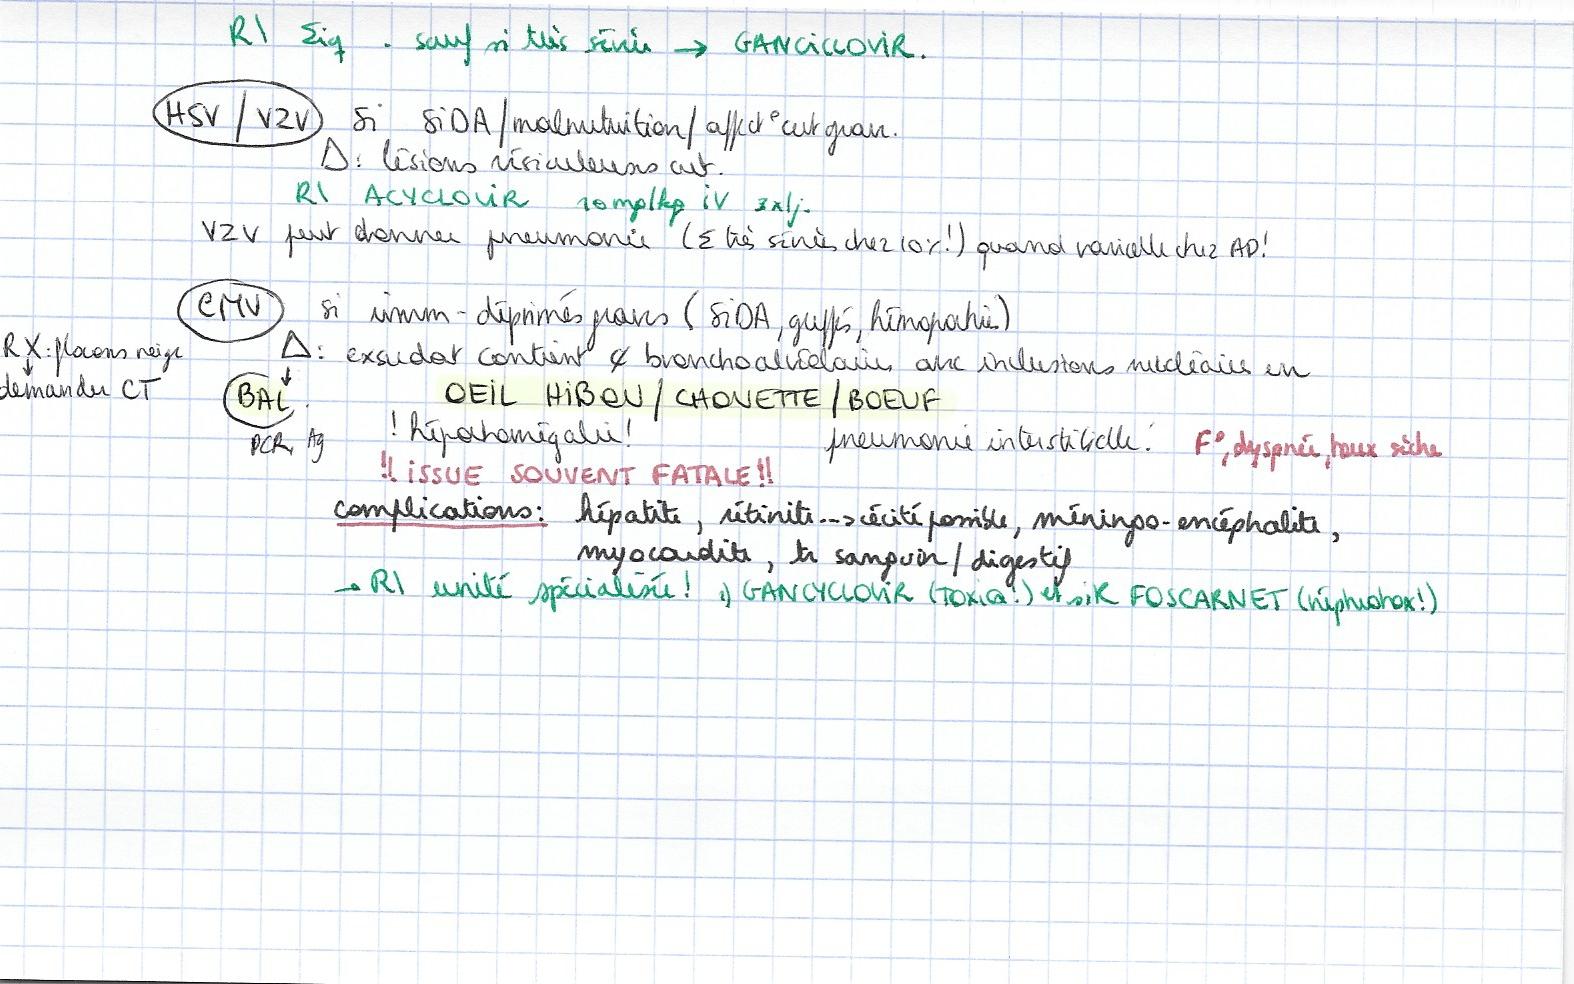 R/ Σiq . sauf si très sévère → GANCiCLOViR.
HSV / VZV si SiDA/malnutrition/affect° cut grav.
Δ: lésions vésiculeuses cut.
R/ ACYCLOViR 10mg/kg iV 3x/j.
VZV peut donner pneumonie (Σ très sévères chez 10%!) quand varicelle chez AD!
CMV si imm-déprimés graves (SiDA, greffés, hémopathie)
RX: flocons neige
↓
demander CT
Δ: exsudat contient ¢ bronchoalvéolaires avec inclusions nucléaires en
OEIL HiBOU / CHOUETTE / BOEUF
BAL
PCR, Ag
! hépatomégalie! pneumonie interstitielle! F°, dyspnée, toux sèche
!! iSSUE SOUVENT FATALE !!
complications: hépatite, rétinite --> cécité possible, méningo-encéphalite,
myocardite, tr sanguin / digestif
→ R/ unité spécialisée! 1) GANCYCLOViR (TOXiQ!) et si R FOSCARNET (néphrotox!)